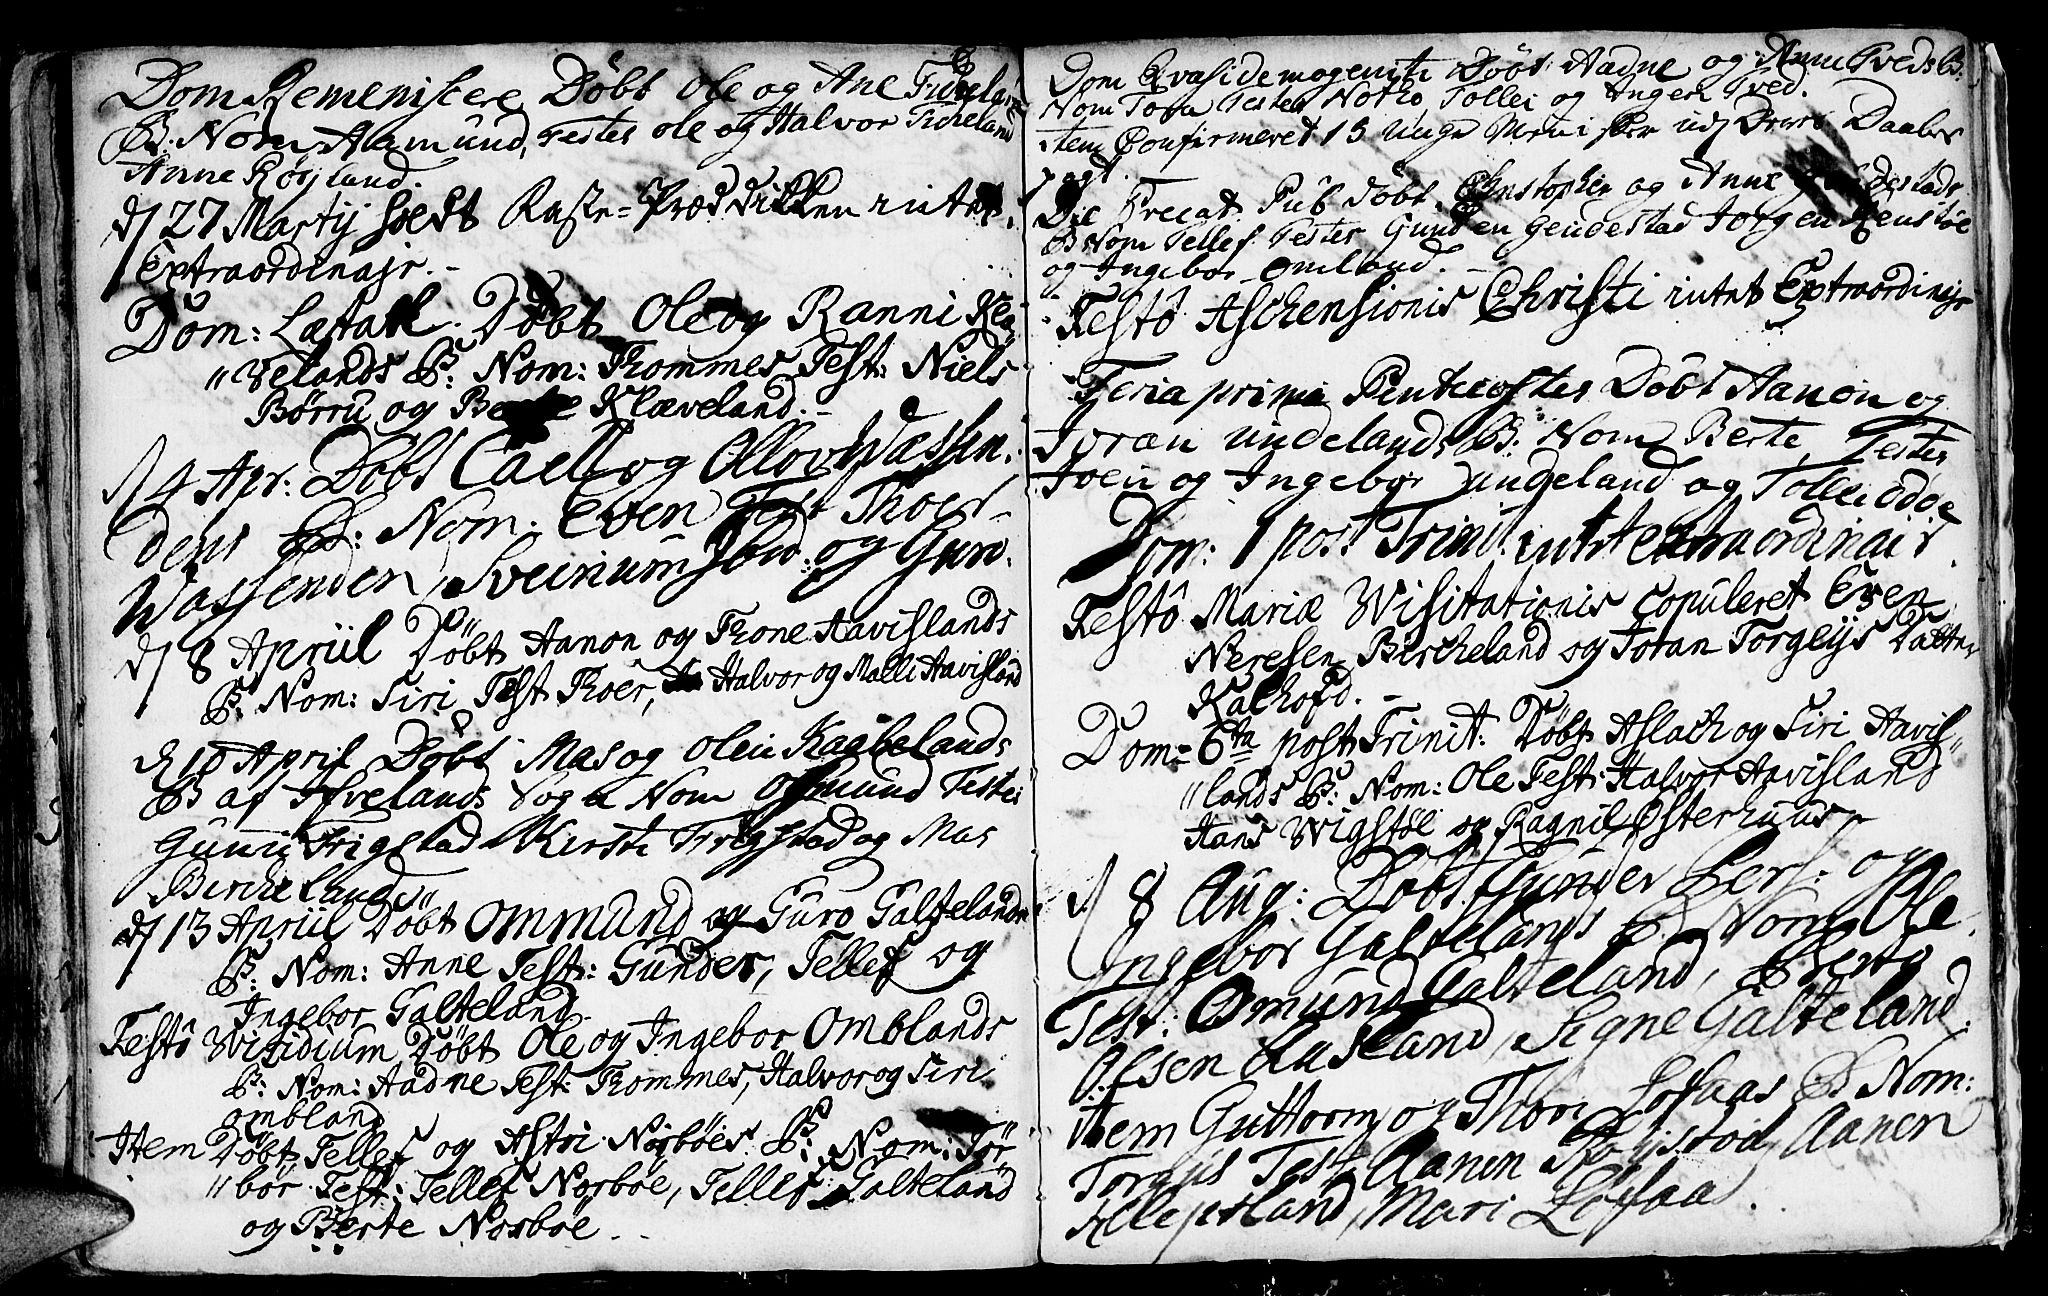 Dom Remeniscere Döbt Ole og Ane Ficheland
B: Nom Aamund, Testes Ole og Halvor Ficheland
Anne Røysland.
d 27 Martij holdt Faste-Prædikken intet
Extraordinajr.
Dom: Lætare. Döbt Ole og Ranni Klæ
"velands B: Nom: Thommes Test: Niels
Børru og Berte Klæveland.
d 4 Apr: Döbt Caell og Ollov Wassen
dens B: Nom. Even Test Thoer
Wassenden, Sveinum Ibid: og Guro.
d 8 Apriil Döbt Aanon og Thone Aavislands
B: Nom: Siri Test Thoer, Halvor og Malli Aavisland
d 10 April Döbt Mas og Olen Kaabelands
B af Ifvelands Sogn Nom Osmund Testes
Gunni Trigstad Kirsti Trygstad og Mas
Bircheland
d 13 Apriil Döbt Ommund og Guro Galtelands
B: Nom: Anne Test: Gunder, Tellef og
Ingebor Galteland
Festô Viridium Döbt Ole og Ingebor Omblands
B: Nom: Aadne Test: Thommes, Halvor og Siri
ombland
Item Döbt Tellef og Astri Norbøes B: Nom: Tør
"bör Test: Tellef Norbøe, Tellef Galteland
og Berte Norbøe.
Dom Qvasidemogeniti Döbt Aadne og Anne Tveds B:
Nom Tora Testes Notto, Tollei og Inger Tved.
item Confirmeret 15 unge Menisker udj Daaber
Die Precat. Pub Döbt Christopher og Anne Gendestads
B Nom Tellef Testes Gunden Gendestad Jørgen Renstøe
og Ingebor Omland.
Festô Aschensionis Christi intet Extraordinajr
Feria prima Pentecostes Döbt Aanon og
Joran Undelands B: Nom Berte, Testes
Joen og Ingebor Undeland og Tollei Ødøe
Dom: 1 post Trinit. intet extraordinair.
Festô Mariæ Visitationis Copuleret Even
Neresen Bircheland og Joran Torgeijs Datter
Kalhofd.
Dom= 6ta post Trinit: Döbt Aslach og Siri Aavis"
"lands B: Nom: Ole Test: Halvor Aavisland
Hans Wigstøl og Ragnil Østerhuus
d 8 Aug: Döbt Gunder Lers: og
Ingebor Galtelands B. Nom Ole
Test: Osmund Galteland, Berte
Olsen Aasland, Signe Galteland
item Guttorm og Thore Lofaas B Nom:
Torgius Test Aanen Røystad, Aanen
Mari Lofaa.